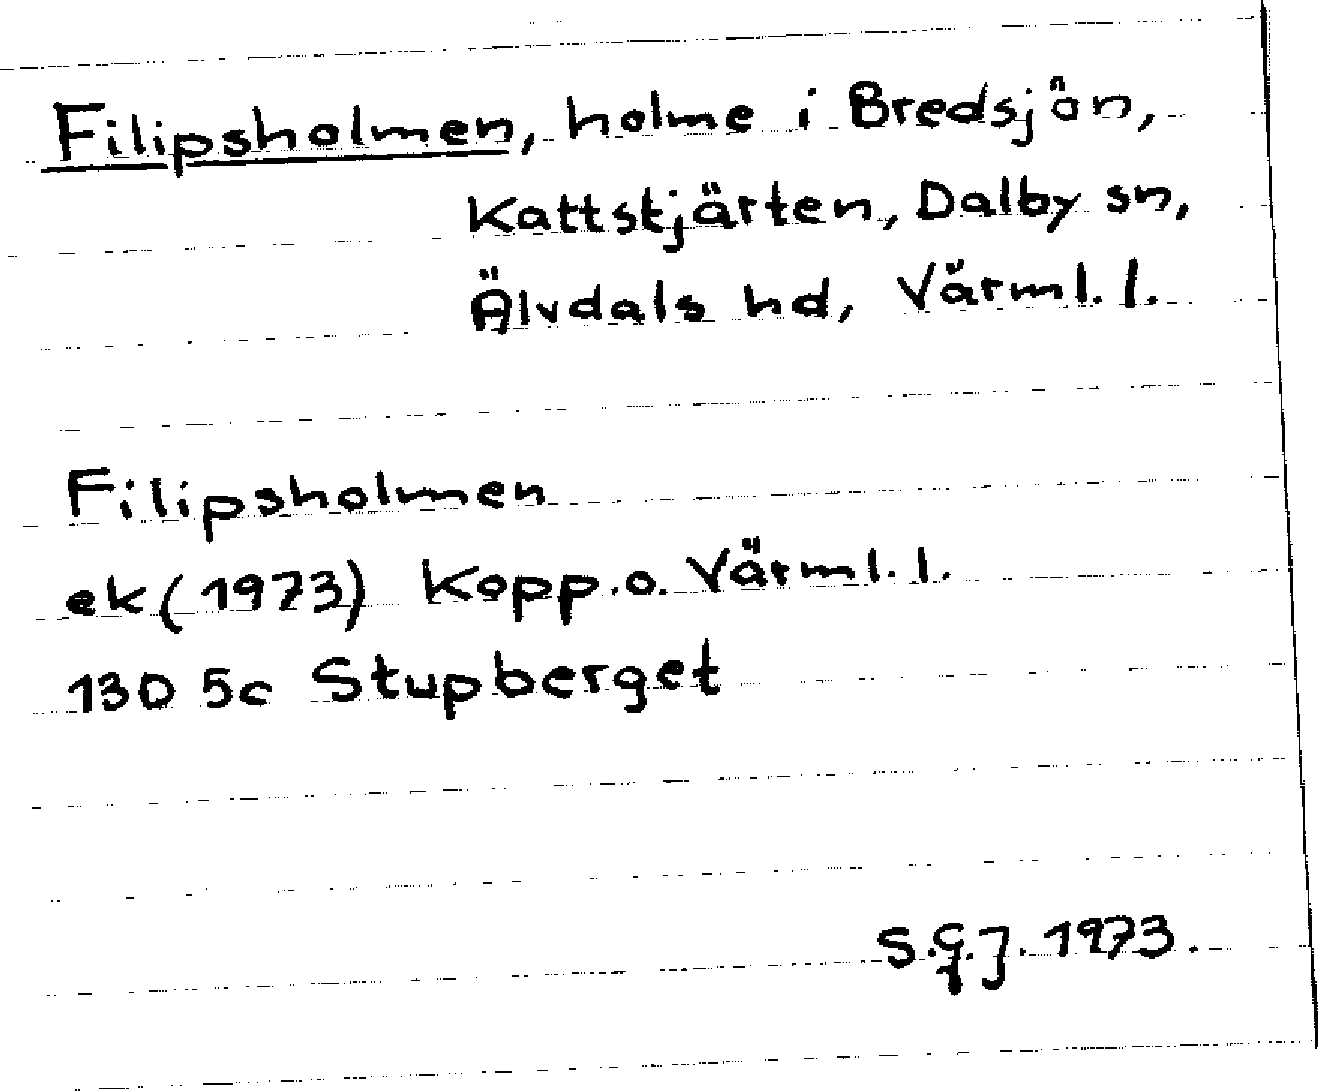 Filipsholmen, holme i Bredsjön,
Kattstjärten, Dalby sn,
Älvdals hd, Värml. l.
Filipsholmen
ek (1973) Kopp. o. Värml. l.
13D 5c Stupberget
S.G.J. 1973.